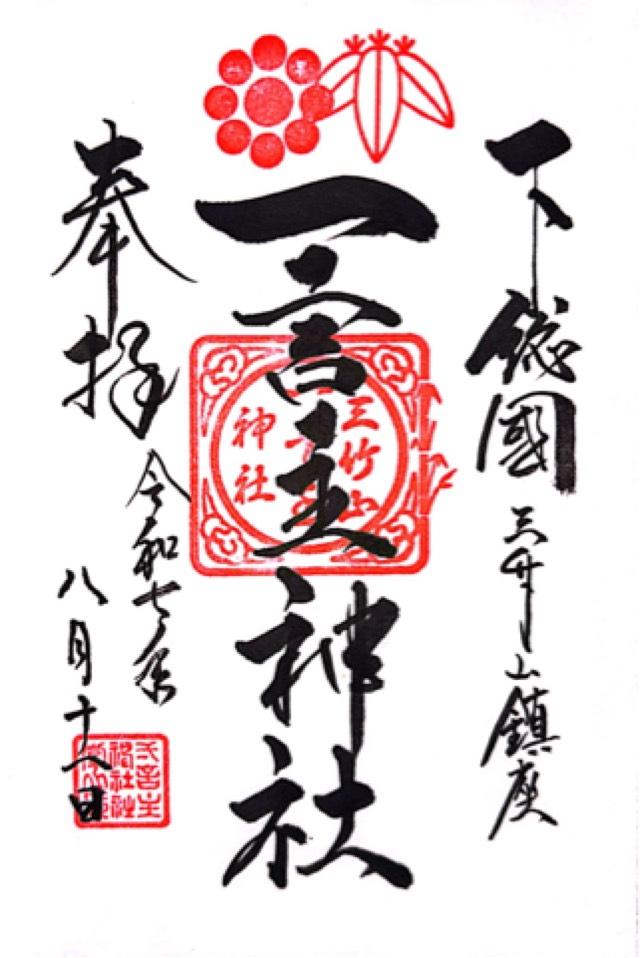 下総國 三竹山鎮座
一言主神社
三竹山
神社
奉拝
令和七年
八月十八日